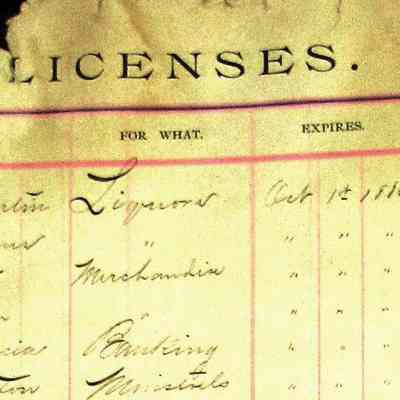 LICENSES.
FOR WHAT. EXPIRES.
Liquors Oct 1st
" " " "
Merchandise " " "
" " " "
Banking " " "
Minstrels " " "